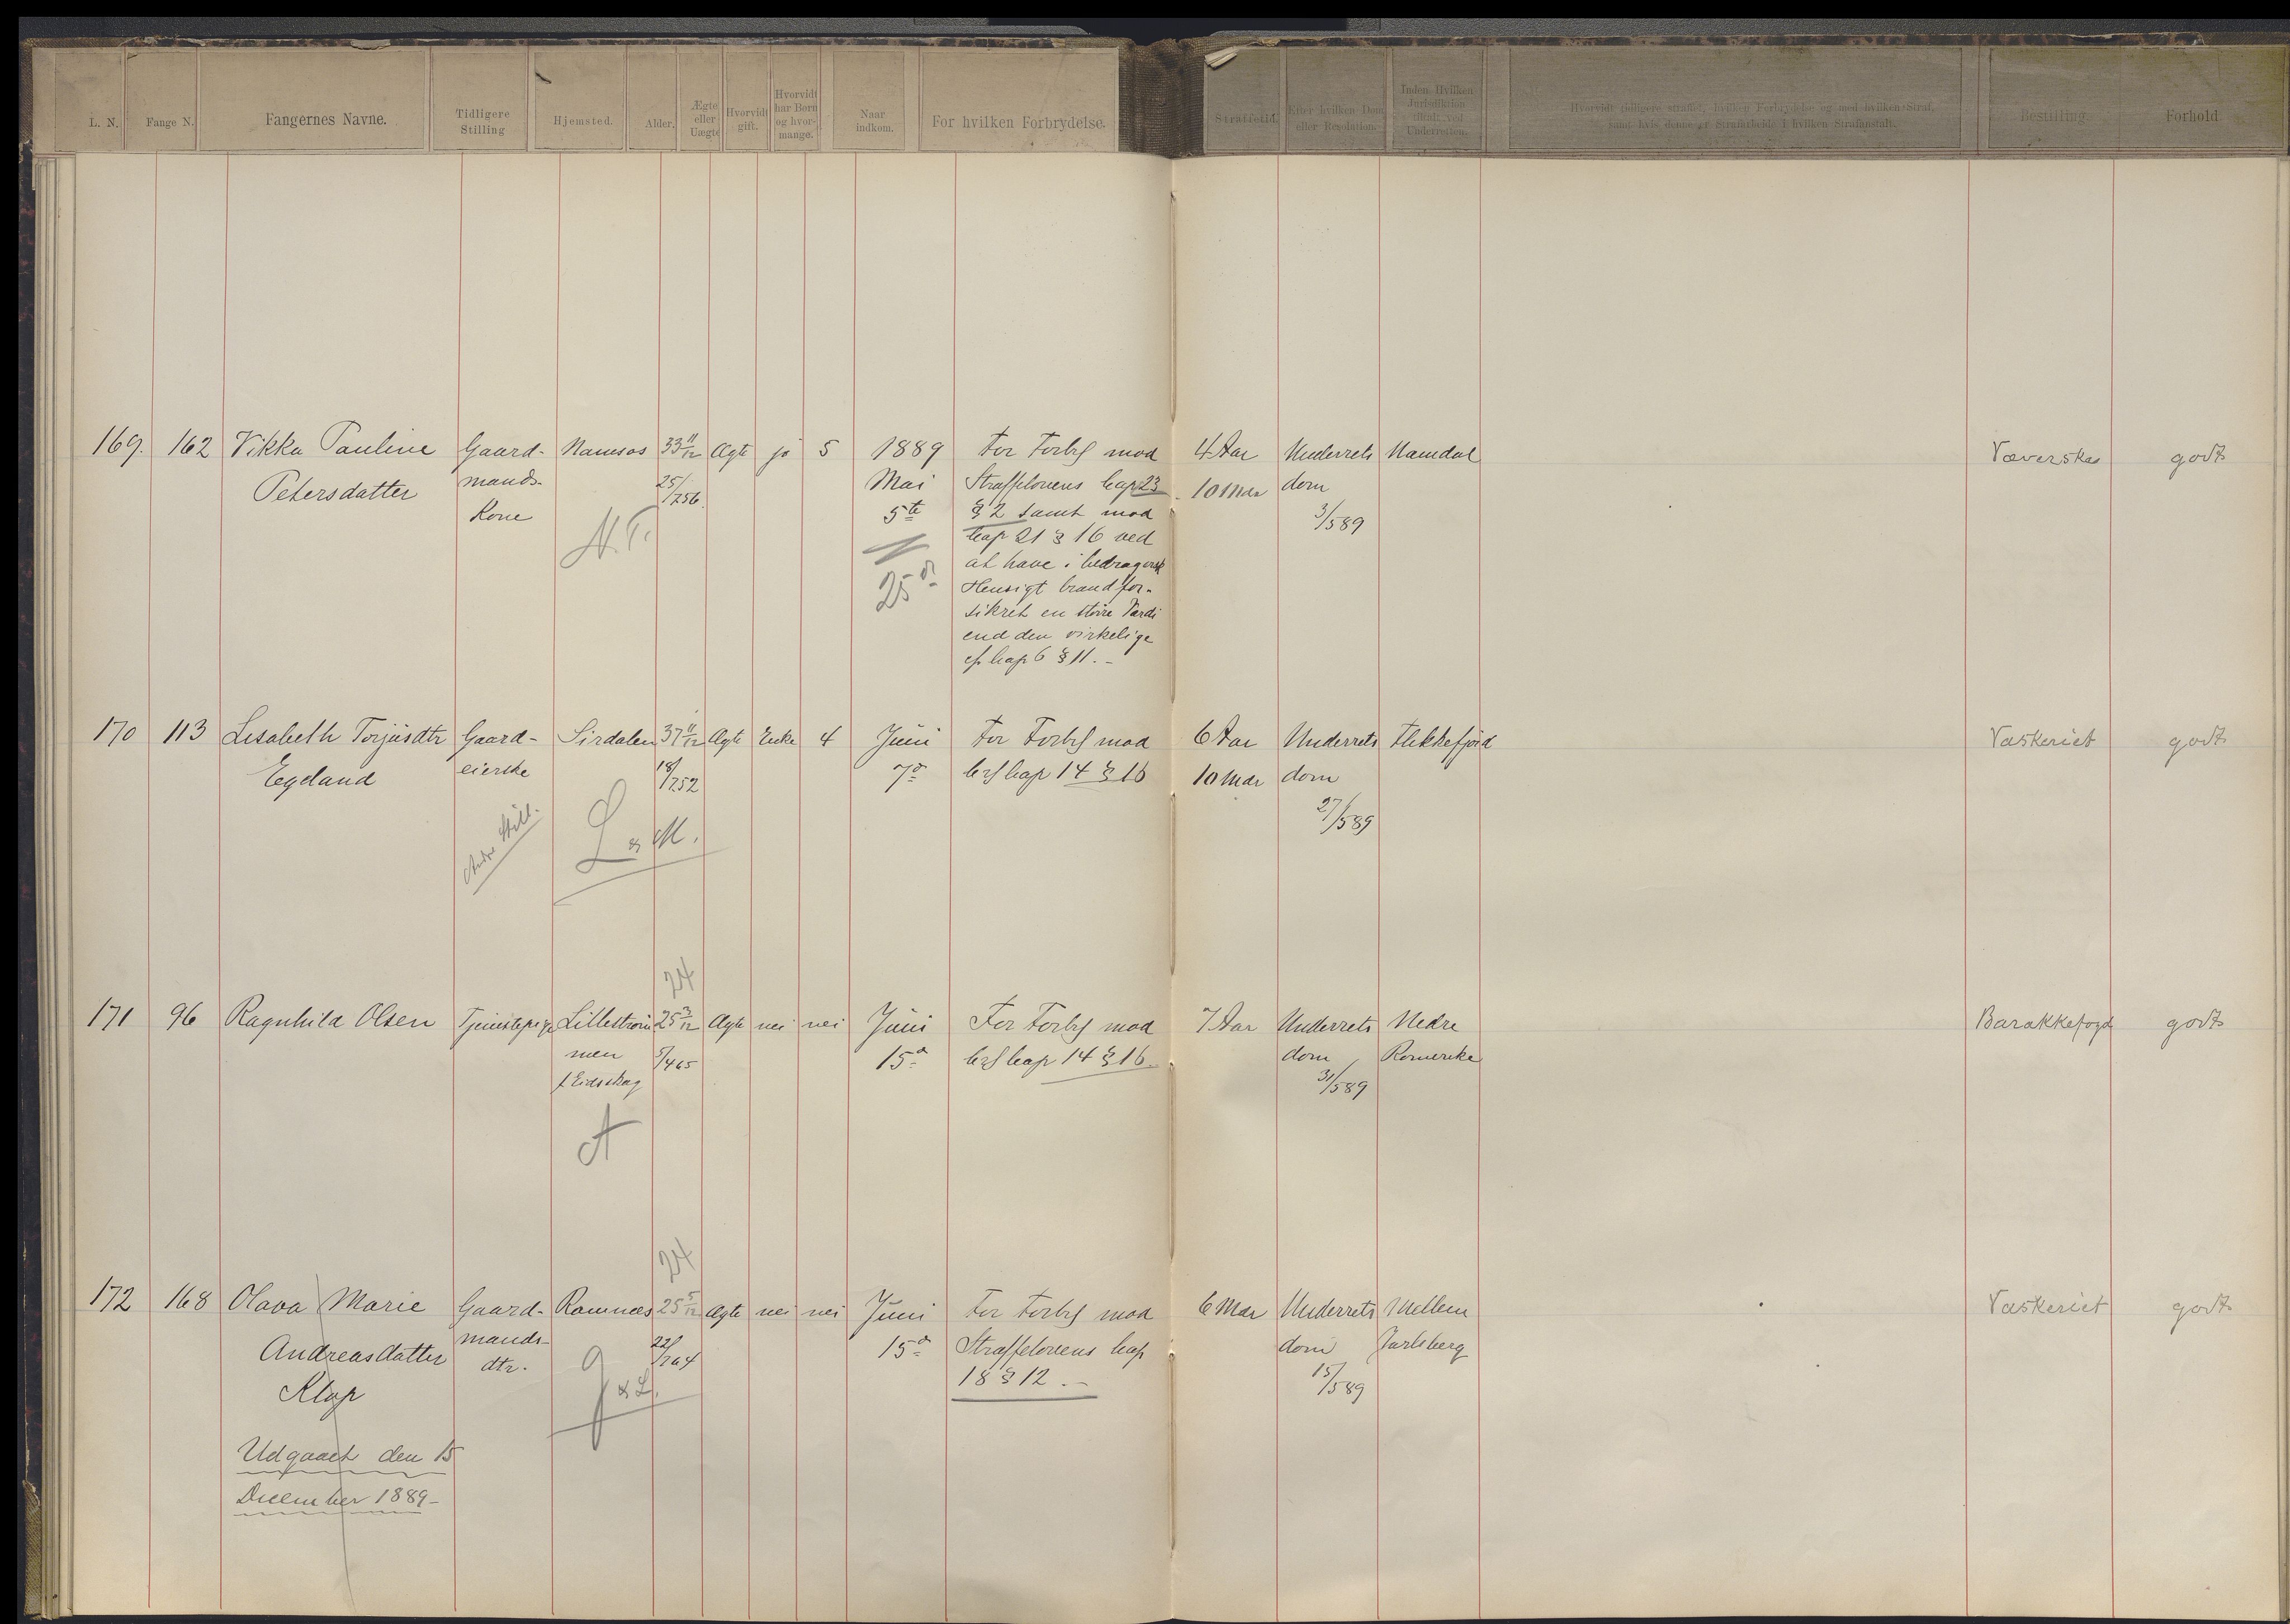 L. N.
Fange N.
Fangernes Navne.
Tidligere
Stilling
Hjemsted.
Alder.
Ægte
eller
Uægte
Hvorvidt
gift.
Hvorvidt
har Børn
og hvor-
mange.
Naar
indkom.
For hvilken Forbrydelse.
Straffetid.
Efter hvilken Dom
eller Resolution.
Inden Hvilken
Jurisdiktion
tiltalt ved
Underretten.
Hvorvidt tidligere straffet, hvilken Forbrydelse og med hvilken Straf,
samt hvis denne er Strafarbeide i hvilken Strafanstalt.
Bestilling.
Forhold
169. 162 Vikka Pauline Gaard- Namsos 33 11/12 Ægte ja 5 1889 For Forbr mod 4 Aar Underrets Namdal Væverske godt
Petersdatter mands- 25/756. Mai Straffelovens Cap 23 10 Mdr dom
Kone 5te § 2 samt mod 3/589
N.T. Cap 21 § 16 ved
at have i bedragersk
25 d Hensigt brandfor-
sikret en større Værdi
end den virkelige
cfr Cap 6 § 11. -
170 113 Lisabeth Torjusdtr Gaard- Sirdalen 37 11/12 Ægte Enke 4 Juni For Forbr mod 6 Aar Underrets Flekkefjord Vaskeriet godt
Egeland eierske 18/752 7d Crl Cap 14 § 16 10 Mdr dom
27/589
Andre Still. L & M.
24
171 96 Ragnhild Olsen Tjenestepige Lillestrøm 25 3/12 Ægte nei nei Juni For Forbr mod 7 Aar Underrets Nedre Barakkefogd godt
men 5/465 15d Crl Cap 14 § 16. dom Romerike
f Eidskog 31/589
A
24
172 168 Olava Marie Gaard- Ramnæs 25 5/12 Ægte nei nei Juni For Forbr mod 6 Mdr Underrets Mellem Vaskeriet godt
Andreasdatter mands- 22/164 15d Straffelovens Cap dom Jarlsberg
Klop dtr. J & L. 18 § 12. - 15/589
Udgaaet den 15
December 1889-